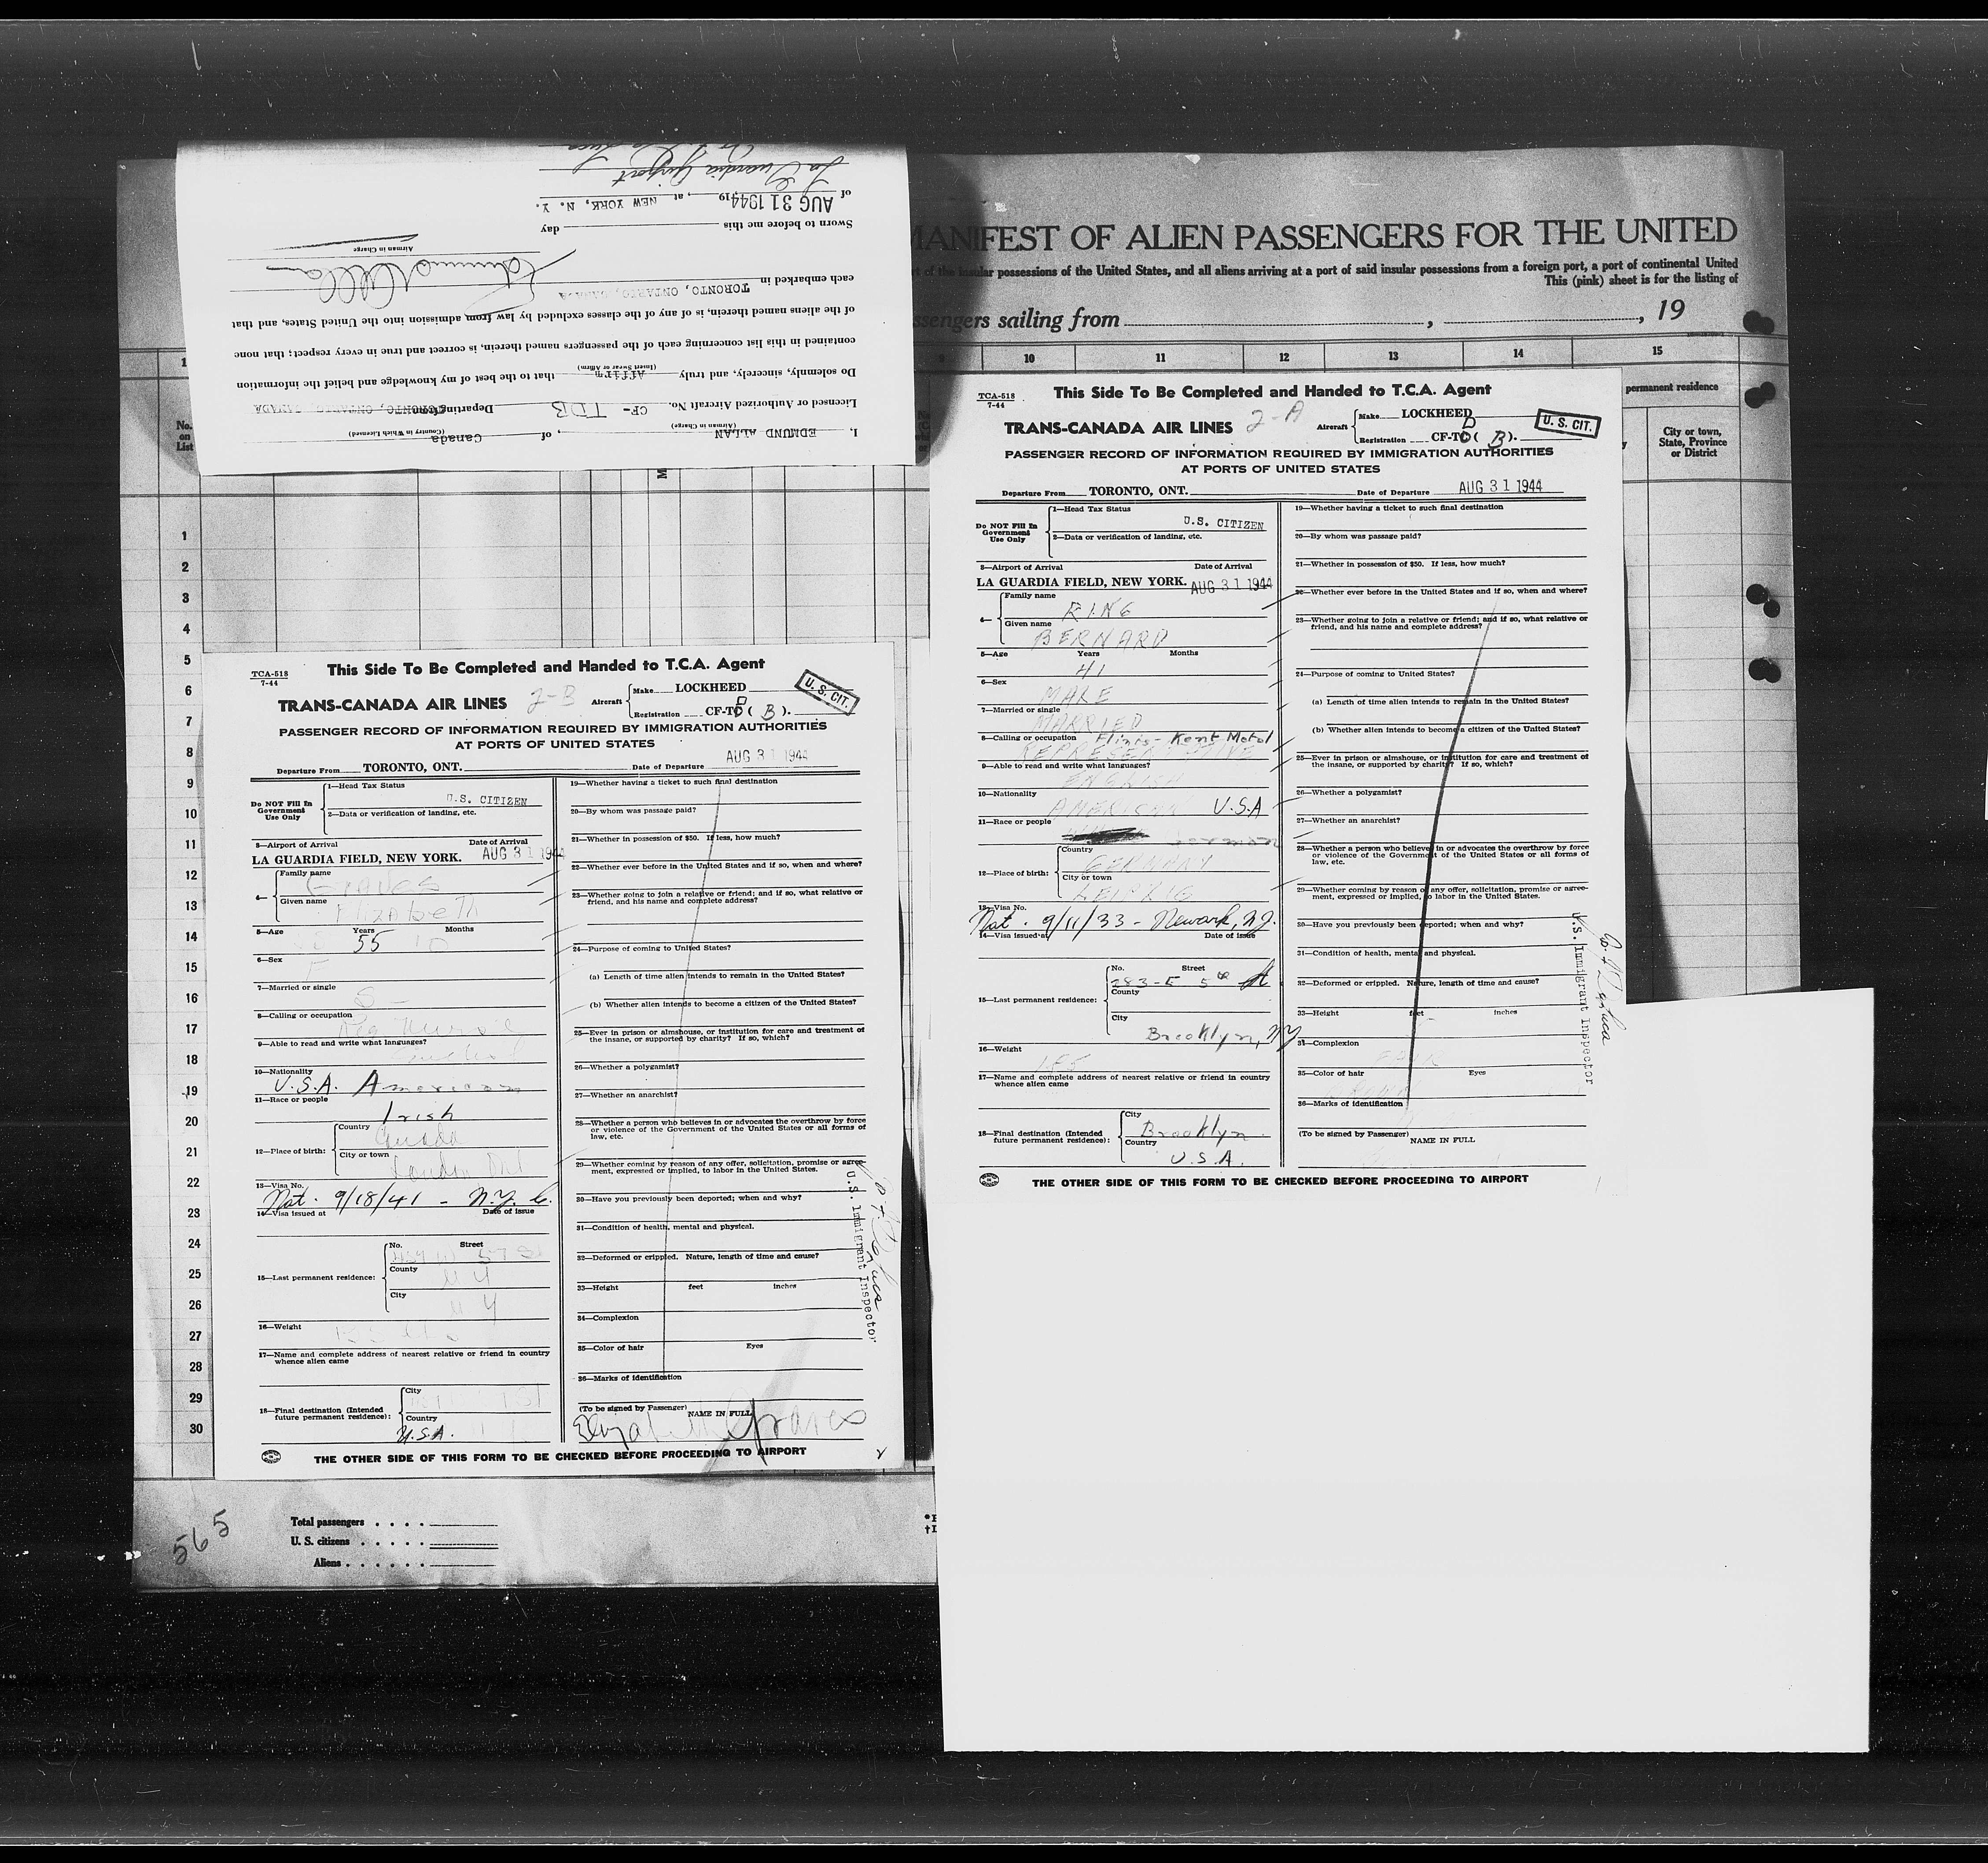 I, EDMUND ALLAN, of Canada
(Airman in Charge) (Country in Which Licensed)
Licensed or Authorized Aircraft No. CF- TDB Departing from TORONTO, ONTARIO, CANADA
Do solemnly, sincerely, and truly Affirm that to the best of my knowledge and belief the information
(Insert Swear or Affirm)
contained in this list concerning each of the passengers named therein, is correct and true in every respect; that none
of the aliens named therein, is of any of the classes excluded by law from admission into the United States, and that
each embarked in TORONTO, ONTARIO, CANADA
Edmund Allan
Airman in Charge
Sworn to before me this day
of AUG 31 1944 19 , at NEW YORK, N. Y.
La Guardia Airport
MANIFEST OF ALIEN PASSENGERS FOR THE UNITED
rt of the insular possessions of the United States, and all aliens arriving at a port of said insular possessions from a foreign port, a port of continental United
This (pink) sheet is for the listing of
ssengers sailing from , , 19
1 9 10 11 12 13 14 15
permanent residence
No. on List
City or town, State, Province or District
1
2
3
4
5
6
7
8
9
10
11
12
13
14
15
16
17
18
19
20
21
22
23
24
25
26
27
28
29
30
TCA-518
7-44
This Side To Be Completed and Handed to T.C.A. Agent
TRANS-CANADA AIR LINES 2-B Aircraft Make LOCKHEED
Registration CF-TD ( B ).
U. S. CIT.
PASSENGER RECORD OF INFORMATION REQUIRED BY IMMIGRATION AUTHORITIES
AT PORTS OF UNITED STATES
Departure From TORONTO, ONT. Date of Departure AUG 31 1944
Do NOT Fill In Government Use Only
1—Head Tax Status U.S. CITIZEN
2—Data or verification of landing, etc.
3—Airport of Arrival Date of Arrival
LA GUARDIA FIELD, NEW YORK. AUG 31 1944
4— Family name Graves
Given name Elizabeth
5—Age Years 55 Months 10
6—Sex F
7—Married or single S
8—Calling or occupation Reg Nurse
9—Able to read and write what languages? English
10—Nationality U.S.A. American
11—Race or people Irish
12—Place of birth: Country Canada
City or town London Ont
13—Visa No. Nat. 9/18/41 - N.Y. C.
14—Visa issued at Date of issue
15—Last permanent residence: No. Street W 57 St
County N Y
City N Y
16—Weight
17—Name and complete address of nearest relative or friend in country whence alien came
18—Final destination (Intended future permanent residence): City
Country U.S.A.
19—Whether having a ticket to such final destination
20—By whom was passage paid?
21—Whether in possession of $50. If less, how much?
22—Whether ever before in the United States and if so, when and where?
23—Whether going to join a relative or friend; and if so, what relative or friend, and his name and complete address?
24—Purpose of coming to United States?
(a) Length of time alien intends to remain in the United States?
(b) Whether alien intends to become a citizen of the United States?
25—Ever in prison or almshouse, or institution for care and treatment of the insane, or supported by charity? If so, which?
26—Whether a polygamist?
27—Whether an anarchist?
28—Whether a person who believes in or advocates the overthrow by force or violence of the Government of the United States or all forms of law, etc.
29—Whether coming by reason of any offer, solicitation, promise or agreement, expressed or implied, to labor in the United States.
30—Have you previously been deported; when and why?
31—Condition of health, mental and physical.
32—Deformed or crippled. Nature, length of time and cause?
33—Height feet inches
34—Complexion
35—Color of hair Eyes
36—Marks of identification
(To be signed by Passenger) NAME IN FULL
Elizabeth Graves
U.S. Immigrant Inspector
THE OTHER SIDE OF THIS FORM TO BE CHECKED BEFORE PROCEEDING TO AIRPORT
TCA-518
7-44
This Side To Be Completed and Handed to T.C.A. Agent
TRANS-CANADA AIR LINES 2-A Aircraft Make LOCKHEED
Registration CF-TD ( B ).
U. S. CIT.
PASSENGER RECORD OF INFORMATION REQUIRED BY IMMIGRATION AUTHORITIES
AT PORTS OF UNITED STATES
Departure From TORONTO, ONT. Date of Departure AUG 31 1944
Do NOT Fill In Government Use Only
1—Head Tax Status U.S. CITIZEN
2—Data or verification of landing, etc.
3—Airport of Arrival Date of Arrival
LA GUARDIA FIELD, NEW YORK. AUG 31 1944
4— Family name RING
Given name BERNARD
5—Age Years 41 Months
6—Sex MALE
7—Married or single MARRIED
8—Calling or occupation Flinis - Kent Motol
REPRESENTATIVE
9—Able to read and write what languages? ENGLISH
10—Nationality AMERICAN U.S.A
11—Race or people German
12—Place of birth: Country GERMANY
City or town LEIPZIG
13—Visa No. Nat. 9/11/33 - Newark, N.J.
14—Visa issued at Date of issue
15—Last permanent residence: No. Street 283-E 5th St
County
City Brooklyn, NY
16—Weight 185
17—Name and complete address of nearest relative or friend in country whence alien came
18—Final destination (Intended future permanent residence): City Brooklyn
Country U.S.A.
19—Whether having a ticket to such final destination
20—By whom was passage paid?
21—Whether in possession of $50. If less, how much?
22—Whether ever before in the United States and if so, when and where?
23—Whether going to join a relative or friend; and if so, what relative or friend, and his name and complete address?
24—Purpose of coming to United States?
(a) Length of time alien intends to remain in the United States?
(b) Whether alien intends to become a citizen of the United States?
25—Ever in prison or almshouse, or institution for care and treatment of the insane, or supported by charity? If so, which?
26—Whether a polygamist?
27—Whether an anarchist?
28—Whether a person who believes in or advocates the overthrow by force or violence of the Government of the United States or all forms of law, etc.
29—Whether coming by reason of any offer, solicitation, promise or agreement, expressed or implied, to labor in the United States.
30—Have you previously been deported; when and why?
31—Condition of health, mental and physical.
32—Deformed or crippled. Nature, length of time and cause?
33—Height feet inches
34—Complexion FAIR
35—Color of hair Eyes
36—Marks of identification
(To be signed by Passenger) NAME IN FULL
U.S. Immigrant Inspector
THE OTHER SIDE OF THIS FORM TO BE CHECKED BEFORE PROCEEDING TO AIRPORT
565
Total passengers
U. S. citizens
Aliens